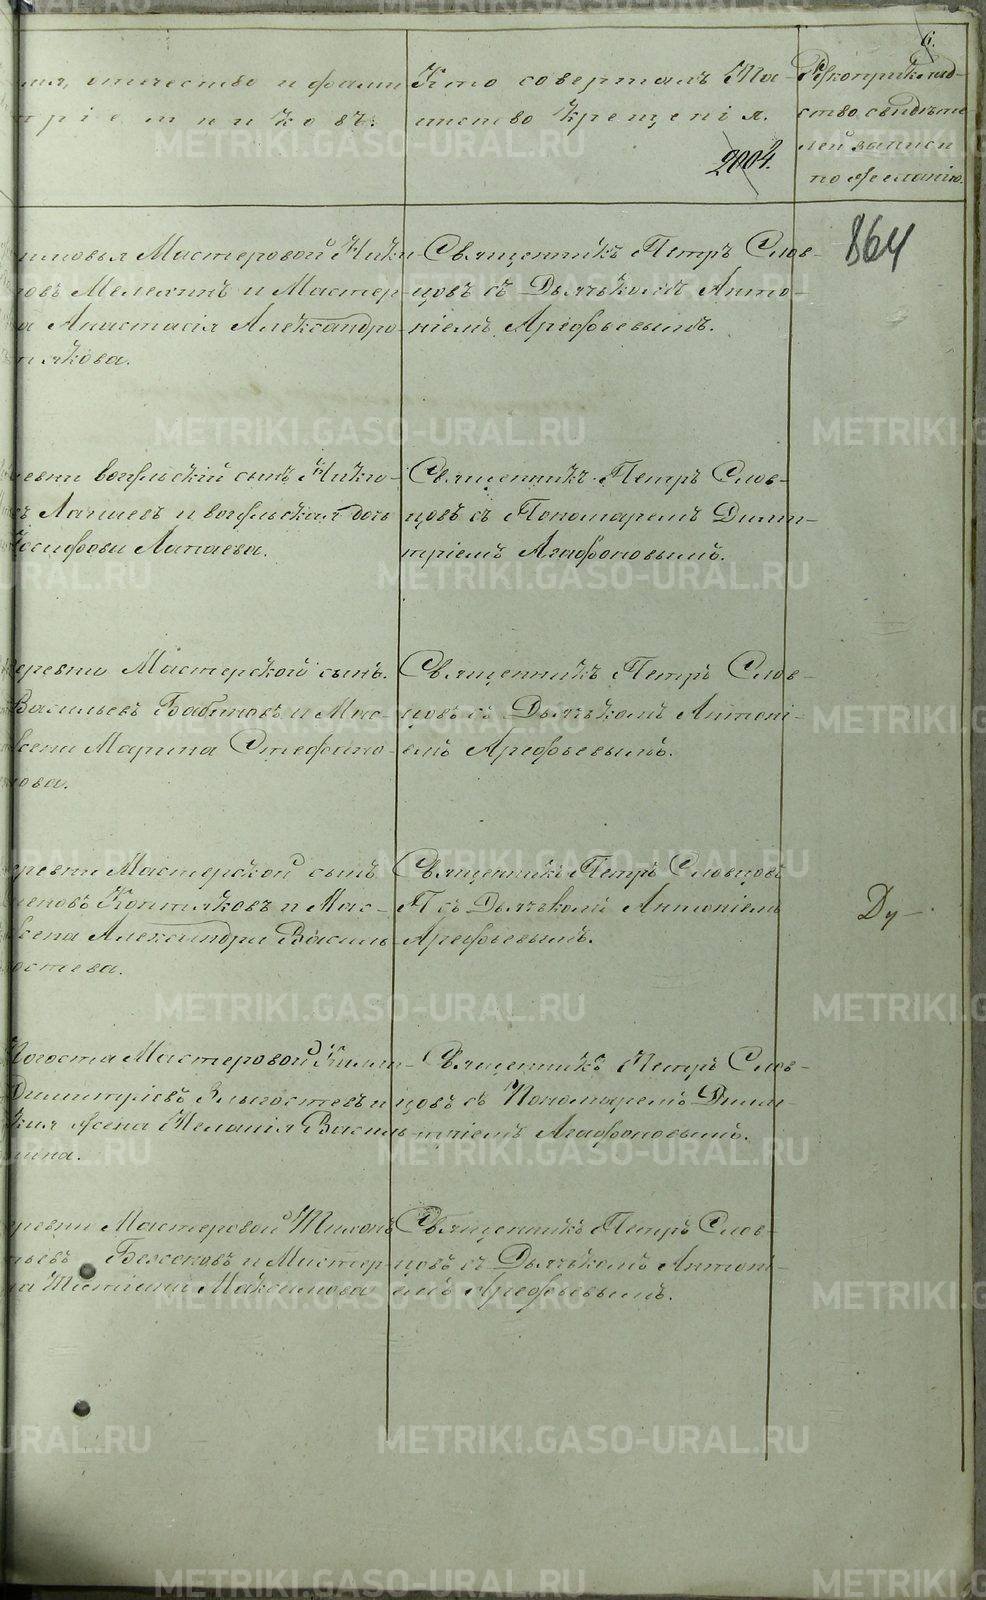 6.
имя, отчество и фами
пріемниковъ.
Кто совершалъ Та-
инство Крещенія.
2004.
Рукоприклад-
ство свидѣте
лей записи
по желанію.
864
Мастеровой Ники
Мелехинъ и Мастер-
Анастасія Александро-
якова.
Священникъ Петръ Слов-
цовъ съ Дьячькомъ Анто-
ніемъ Арефьевымъ.
вогульскій сынъ Нико-
Лачиевъ и вогульская дочь
Іосифова Лапаева.
Священникъ Петръ Слов-
цовъ съ Пономаремъ Дими-
тріемъ Агафоновымъ.
деревни Мастерской сынъ
Васильевъ Бабиновъ и Мас-
жена Марина Стефано-
нова.
Священникъ Петръ Слов-
цовъ съ Дьячькомъ Антоні-
емъ Арефьевымъ.
деревни Мастерской сынъ
Коптяковъ и Мас-
жена Александра Василь-
остева.
Священникъ Петръ Словцовъ
съ Дьячькомъ Антоніемъ
Арефьевымъ.
Ду
Погоста Мастеровой
Димитріевъ Злыгостевъ и
жена Меланія Василь-
шина.
Священникъ Петръ Слов-
цовъ съ Пономаремъ Дими-
тріемъ Агафоновымъ.
деревни Мастеровой Тихонъ
и Мастер-
Максимова
Священникъ Петръ Слов-
цовъ съ Дьячькомъ Антоні-
емъ Арефьевымъ.
METRIKI.GASO-URAL.RU